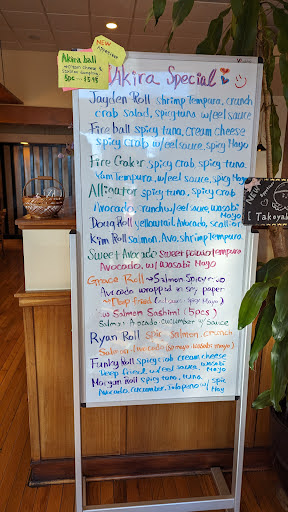 NEW
Appetizer
Akira ball
5pc ... $5.95
Akira Special
Jayden Roll shrimp Tempura, crunch
crab salad, spicy tuna w/ eel sauce
Fire ball spicy tuna, cream cheese
spicy crab w/ eel sauce, spicy Mayo
Fire Craker spicy crab, spicy tuna
Yam Tempura, w/ eel sauce, spicy Mayo
Alligator spicy tuna, spicy crab
Avocado, crunch w/ eel sauce, wasabi
Mayo
Doug Roll yellowtail, Avocado, scallion
Kim Roll Salmon, Avo, shrimp Tempura
Sweet Avocado sweet potato tempura
Avocado, w/ Wasabi Mayo
Grace Roll ~ Salmon
Avocado wrapped in soy paper
Fried (eel sauce, spicy Mayo)
Salmon Sashimi (5pcs)
Salmon Avocado cucumber w/ sauce
Ryan Roll Spicy Salmon, crunch
Funky Roll spicy crab cream cheese
Deep fried w/ eel sauce, Wasabi
Mayo
Roll spicy tuna, tuna,
Avocado, Cucumber, Jalapeno w/ Spic
Mayo
NEW
[ Takoyak